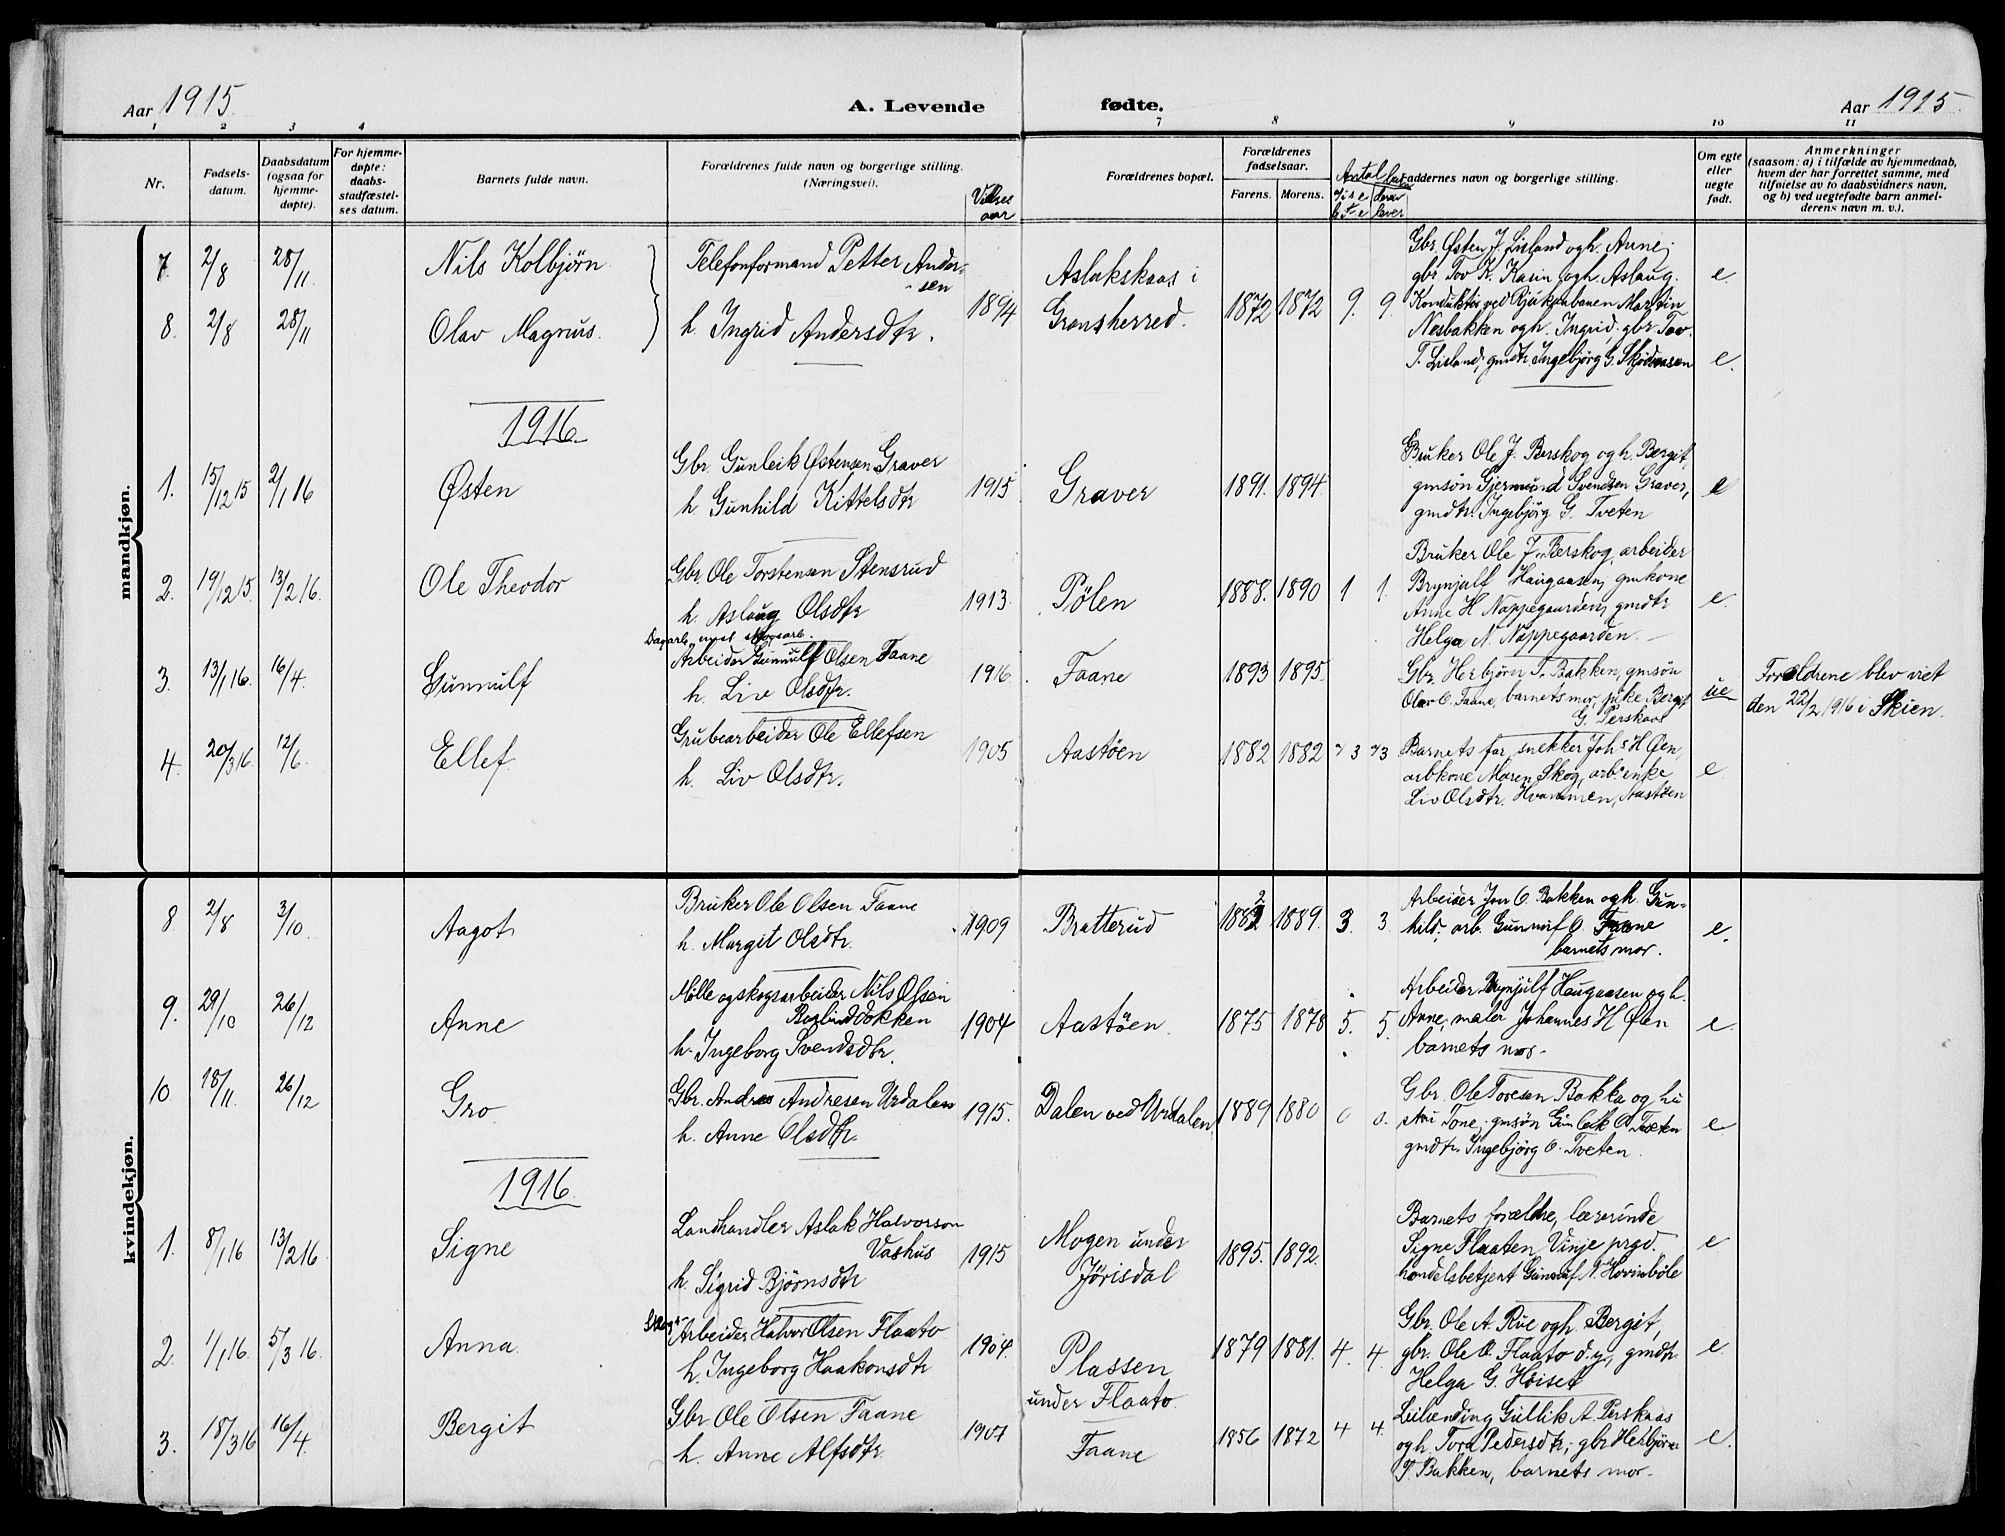 Aar 1915.
A. Levende
fødte.
Aar 1915.
1 2 3 4 7 8 9 10 11
Nr.
Fødsels-
datum.
Daabsdatum
(ogsaa for
hjemme-
døpte).
For hjemme-
døpte:
daabs-
stadfæstel-
ses datum.
Barnets fulde navn.
Forældrenes fulde navn og borgerlige stilling.
(Næringsvei).
Vielses
aar
Forældrenes bopæl.
Forældrenes
fødselsaar.
Farens. Morens.
Antal
Faddernes navn og borgerlige stilling.
Om egte
eller
uegte
født.
Anmerkninger
(saasom: a) i tilfælde av hjemmedaab,
hvem der har forrettet samme, med
tilføielse av to daabsvidners navn,
og b) ved uegtefødte barn anmel-
derens navn m. v.).
mandkjøn.
7. 2/8 28/11 Nils Kolbjørn
8. 2/8 28/11 Olav Magnus.
Telefonformand Petter Ander-
sen
h. Ingrid Andersdtr.
1894
Aslakskaas i
Gransherred.
1872 1872 9. 9.
Gbr. Østen J. Lisland og h. Anne;
gbr. Tov K. Kasin og h. Aslaug.
Konduktør ved Rjukanbanen Martin
Nesbakken og h. Ingrid; gbr. Tov
T. Lisland; gmdtr. Ingebjørg G.
e
e.
1916.
1. 15/12 15 2/1 16 Østen
Gbr. Gunleik Østensen Graver
h. Gunhild Kittelsdtr
1915
Graver
1891. 1894
Bruker Ole J. Berskog og h. Bergit,
gmsøn Gjermund Svendsen Graver,
gmdtr. Ingebjörg G. Tveten
e
2. 19/12 15. 13/2 16. Ole Theodor
Gbr Ole Torstensen Stensrud
h. Aslaug Olsdtr
1913.
Pölen
1888. 1890 1 1.
Bruker Ole J. Berskog, arbeider
Brynjulf Haugaasen, gmkone
Anne H Nappegaarden, gmdtr
Helga N. Nappegaarden.
e.
3. 13/1 16. 16/4. Gunnulf
Arbeider Gunnulf Olsen Faane
h. Liv Olsdtr.
1916.
Faane
1893 1895.
Gbr. Herbjørn T. Bakken, gmsøn
Olav O. Faane, barnets mor, pike Bergit
G. Perskaas
ue
Forældrene blev viet
den 22/2 1916 i Skien.
4. 20/3 16. 12/6. Ellef
Grubearbeider Ole Ellefsen
h. Liv Olsdtr.
1905
Aastöen
1882 1882 3 3
Barnets far, snekker Johs H Øen,
arbkone Maren Skog, arb enke
Liv Olsdtr. Hvammen, Aastöen
e.
kvindekjøn.
8 2/8 3/10. Aagot
Bruker Ole Olsen Faane
h. Margit Olsdtr.
1909
Bratterud
1882 1889. 3. 3.
Arbeider Jon O. Bakken og h. Gun-
hild, arb. Gunnulf O. Faane
barnets mor.
e.
9. 29/10 26/12 Anne
Mölle og skogsarbeider Nils Olsen
h. Ingeborg Svendsdtr.
1904
Aastöen.
1875 1878 5. 5.
Arbeider Brynjulf Haugaasen og h.
Anne, maler Johannes H Øen
barnets mor.
e
10. 18/11. 26/12 Gro.
Gbr. Andres Andresen Urdalen
h. Anne Olsdtr.
1915.
Dalen ved Urdalen.
1889 1880 0 0.
Gbr. Ole Toresen Bakka og hu
stru Tone; gmsøn Gunleik O. Tveten
gmdtr. Ingebjörg O. Tveten.
e
1916.
1. 8/1 16 13/2 16 Signe
Landhandler Aslak Halvorson
Vashus
h. Sigrid Bjørnsdtr
1915
Mogen under
Jörisdal
1895. 1892.
Barnets forældre, lærerinde
Signe Flaaten Vinje prgd.
handelsbetjent Gunnulf N. Hovinböle
e
2. 1/1 16. 5/3 16. Anna.
Skogs-
Arbeider Halvor Olsen Flaato
h. Ingeborg Haakonsdtr
1904.
Plassen
under Flaato.
1879 1881. 4. 4.
Gbr. Ole A. Rue og h. Bergit,
gbr. Ole O. Flaato d.y., gmdtr.
Helga G. Höiset
e.
3. 18/3 16 16/4. Bergit
Gbr Ole Olsen Faane
h. Anne Alfsdtr.
1907
Faane
1856 1872 4 4.
Leilænding Gullik A. Perskaas
og h. Tora Pedersdtr; gbr. Herbjørn
T. Bakken, barnets mor.
e.